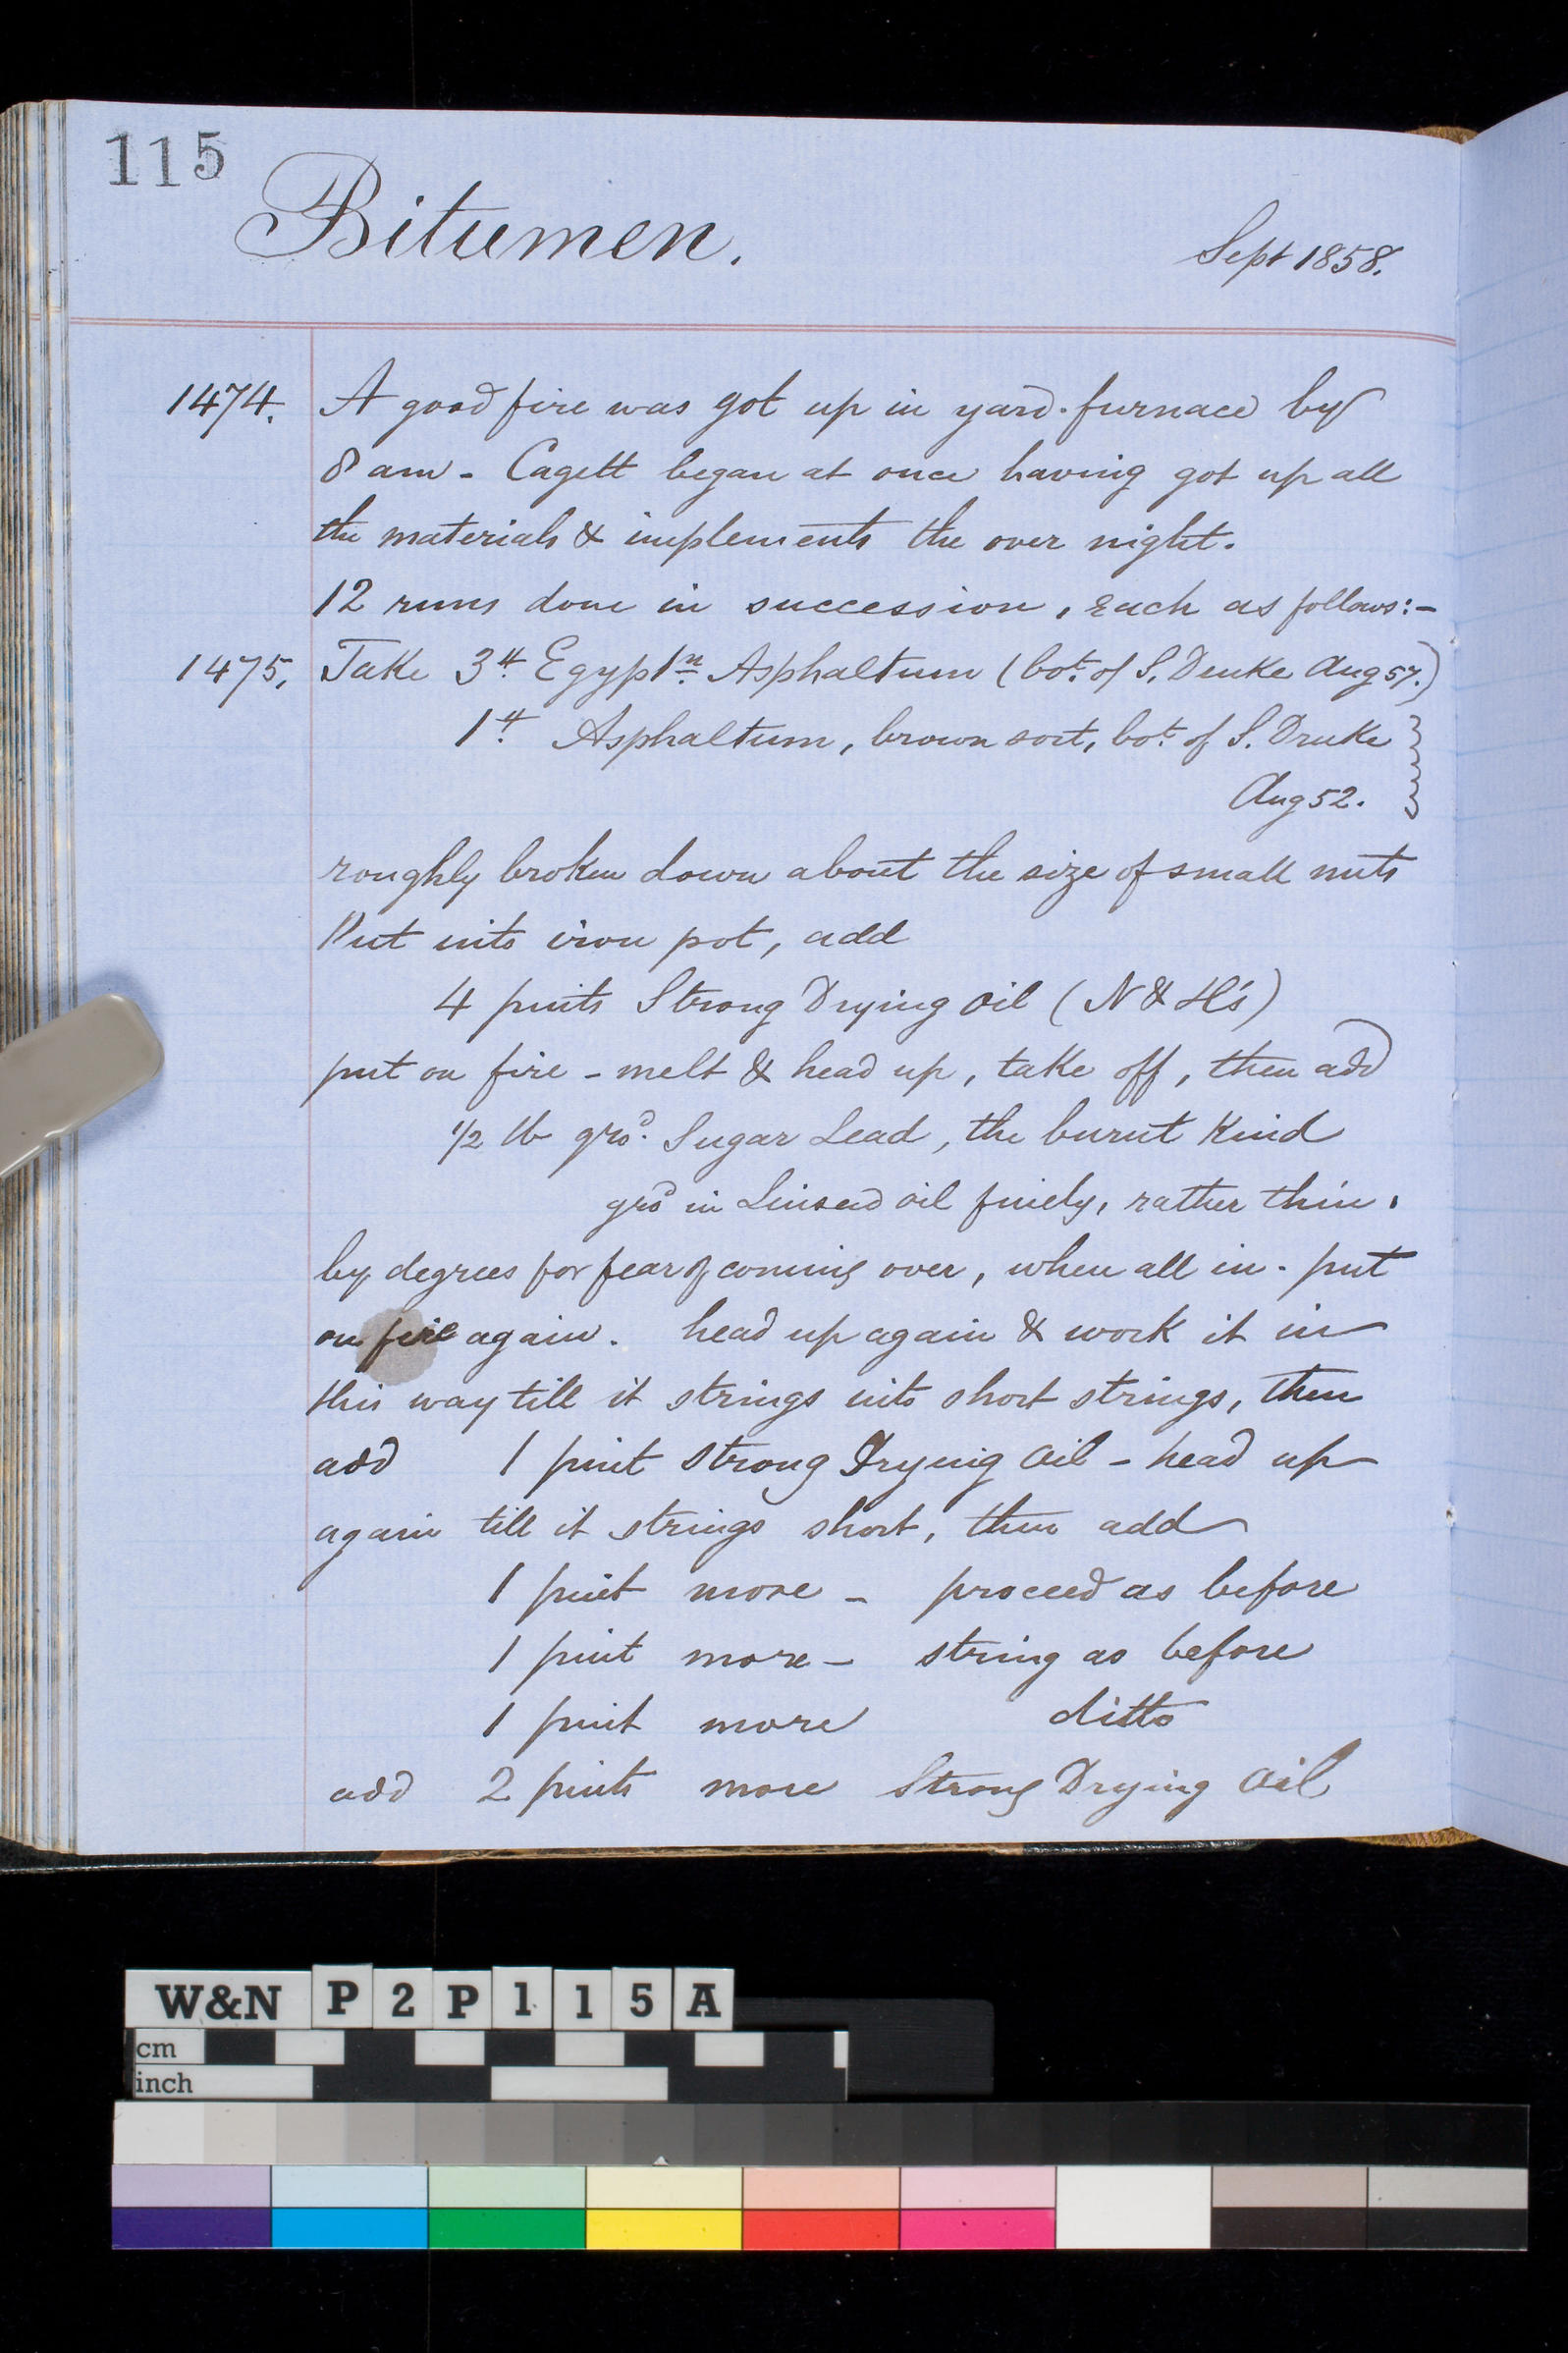 115
Bitumen.
Sept 1858.
1474. A good fire was got up in yard-furnace by
8 am - Cagett began at once having got up all
the materials & implements the over night.
12 runs done in succession, each as follows:-
1475. Take 3 lb Egypt.n Asphaltum (bot. of S. Druke Aug 57.)
1 lb Asphaltum, brown sort, bot. of S. Druke
Aug 52.
roughly broken down about the size of small nuts
Put into iron pot, add
4 pints Strong Drying Oil (N & H's)
put on fire - melt & head up, take off, then add
1/2 lb gro.d Sugar Lead, the burnt kind
gro.d in Linseed oil finely, rather thin.
by degrees for fear of coming over, when all in - put
on fire again. head up again & work it in
this way till it strings into short strings, then
add 1 pint strong Drying Oil - head up
again till it strings short, then add
1 pint more - proceed as before
1 pint more - string as before
1 pint more ditto
add 2 pints more Strong Drying Oil
W&N P2P115A
cm
inch